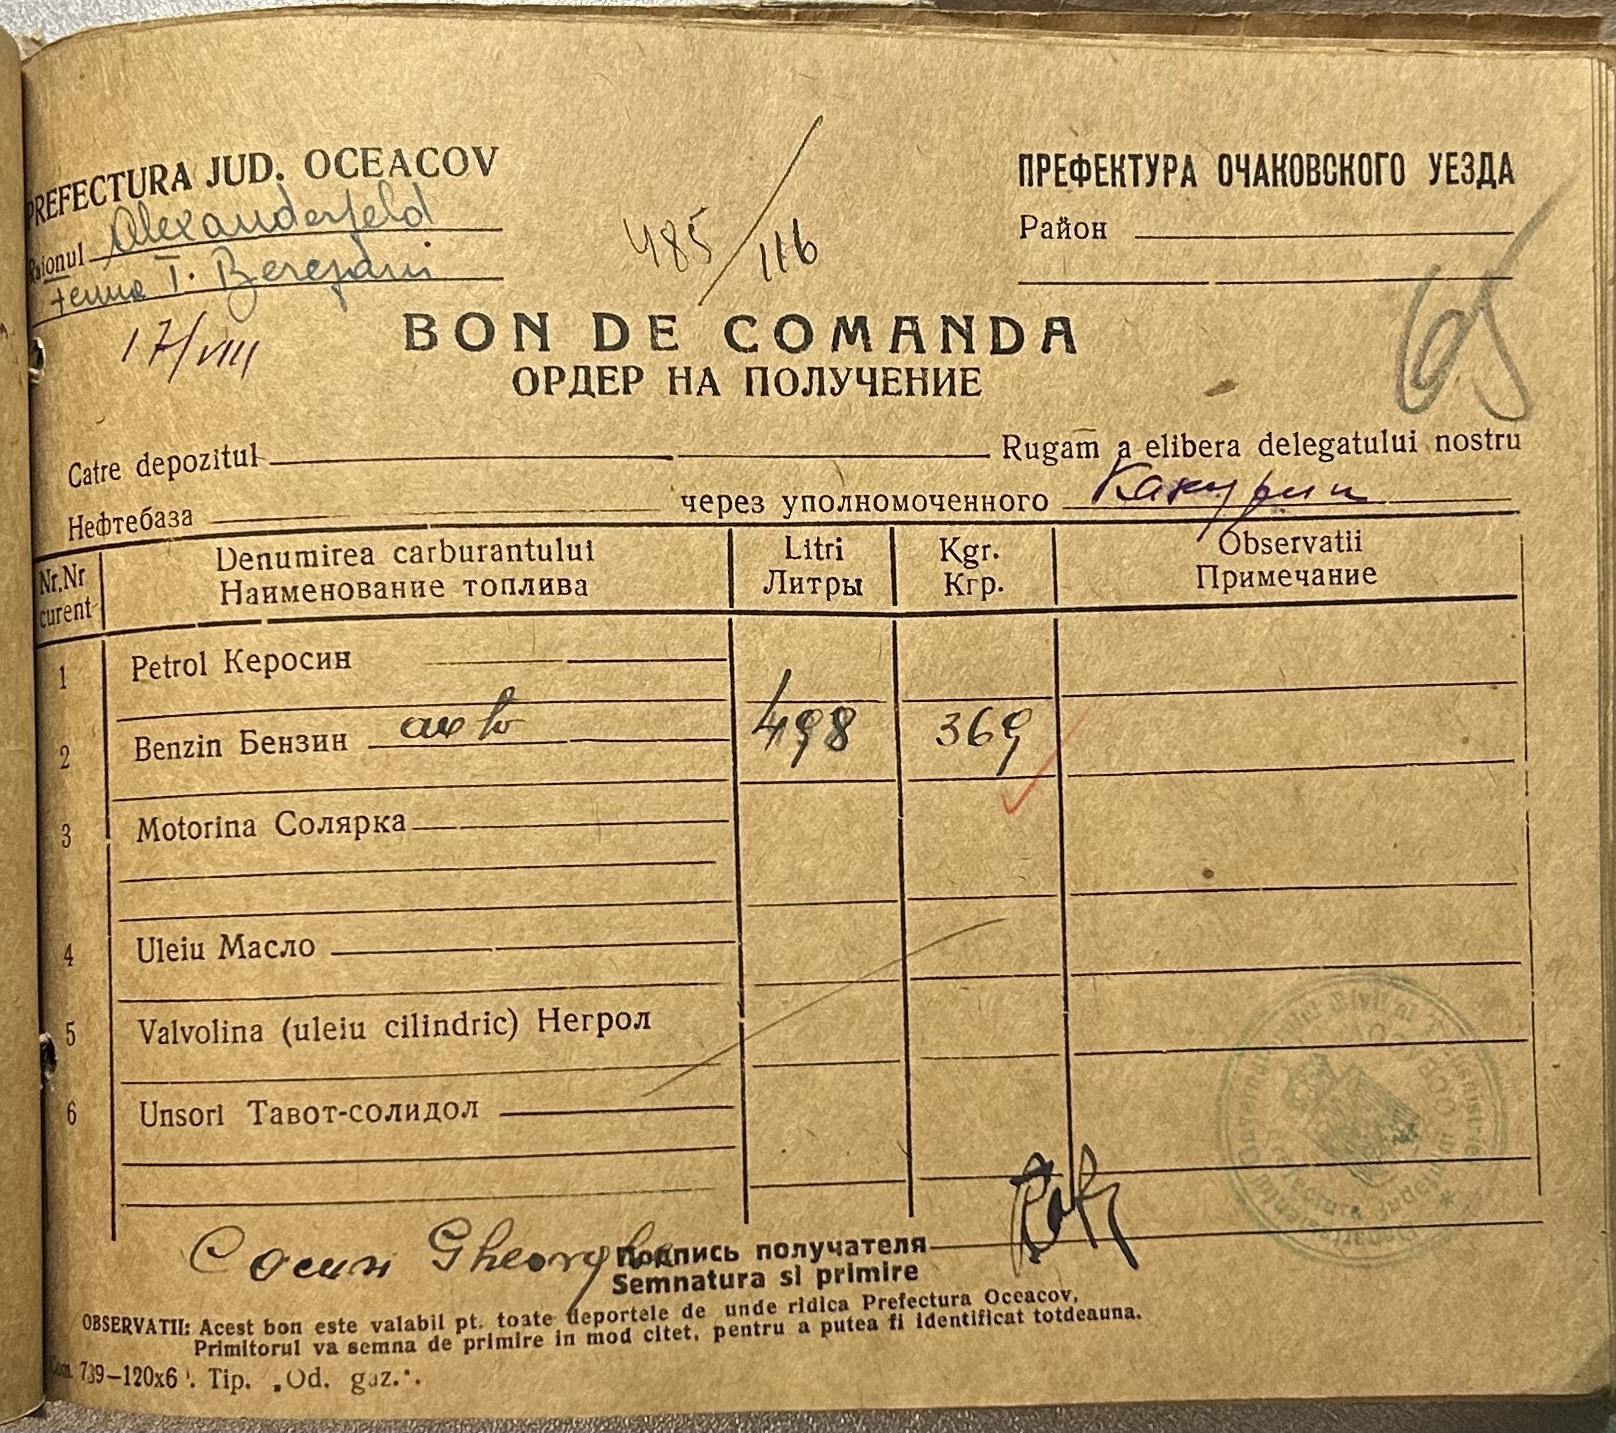 PREFECTURA JUD. OCEACOV
Raionul Alexanderfeld
Ferma T. Berezani
17/VIII
485/116
ПРЕФЕКТУРА ОЧАКОВСКОГО УЕЗДА
Район
65
BON DE COMANDA
ОРДЕР НА ПОЛУЧЕНИЕ
Catre depozitul Rugam a elibera delegatului nostru
Нефтебаза через уполномоченного Какурин
Nr.Nr curent Denumirea carburantului Litri Kgr. Observatii
Наименование топлива Литры Кгр. Примечание
1 Petrol Керосин
2 Benzin Бензин 498 369
3 Motorina Солярка
4 Uleiu Масло
5 Valvolina (uleiu cilindric) Негрол
6 Unsori Тавот-солидол
Gheorghe Подпись получателя
Semnatura si primire
OBSERVATII: Acest bon este valabil pt. toate deportele de unde ridica Prefectura Oceacov,
Primitorul va semna de primire in mod citet, pentru a putea fi identificat totdeauna.
Com. 739—120x6 . Tip. „Od. gaz.".